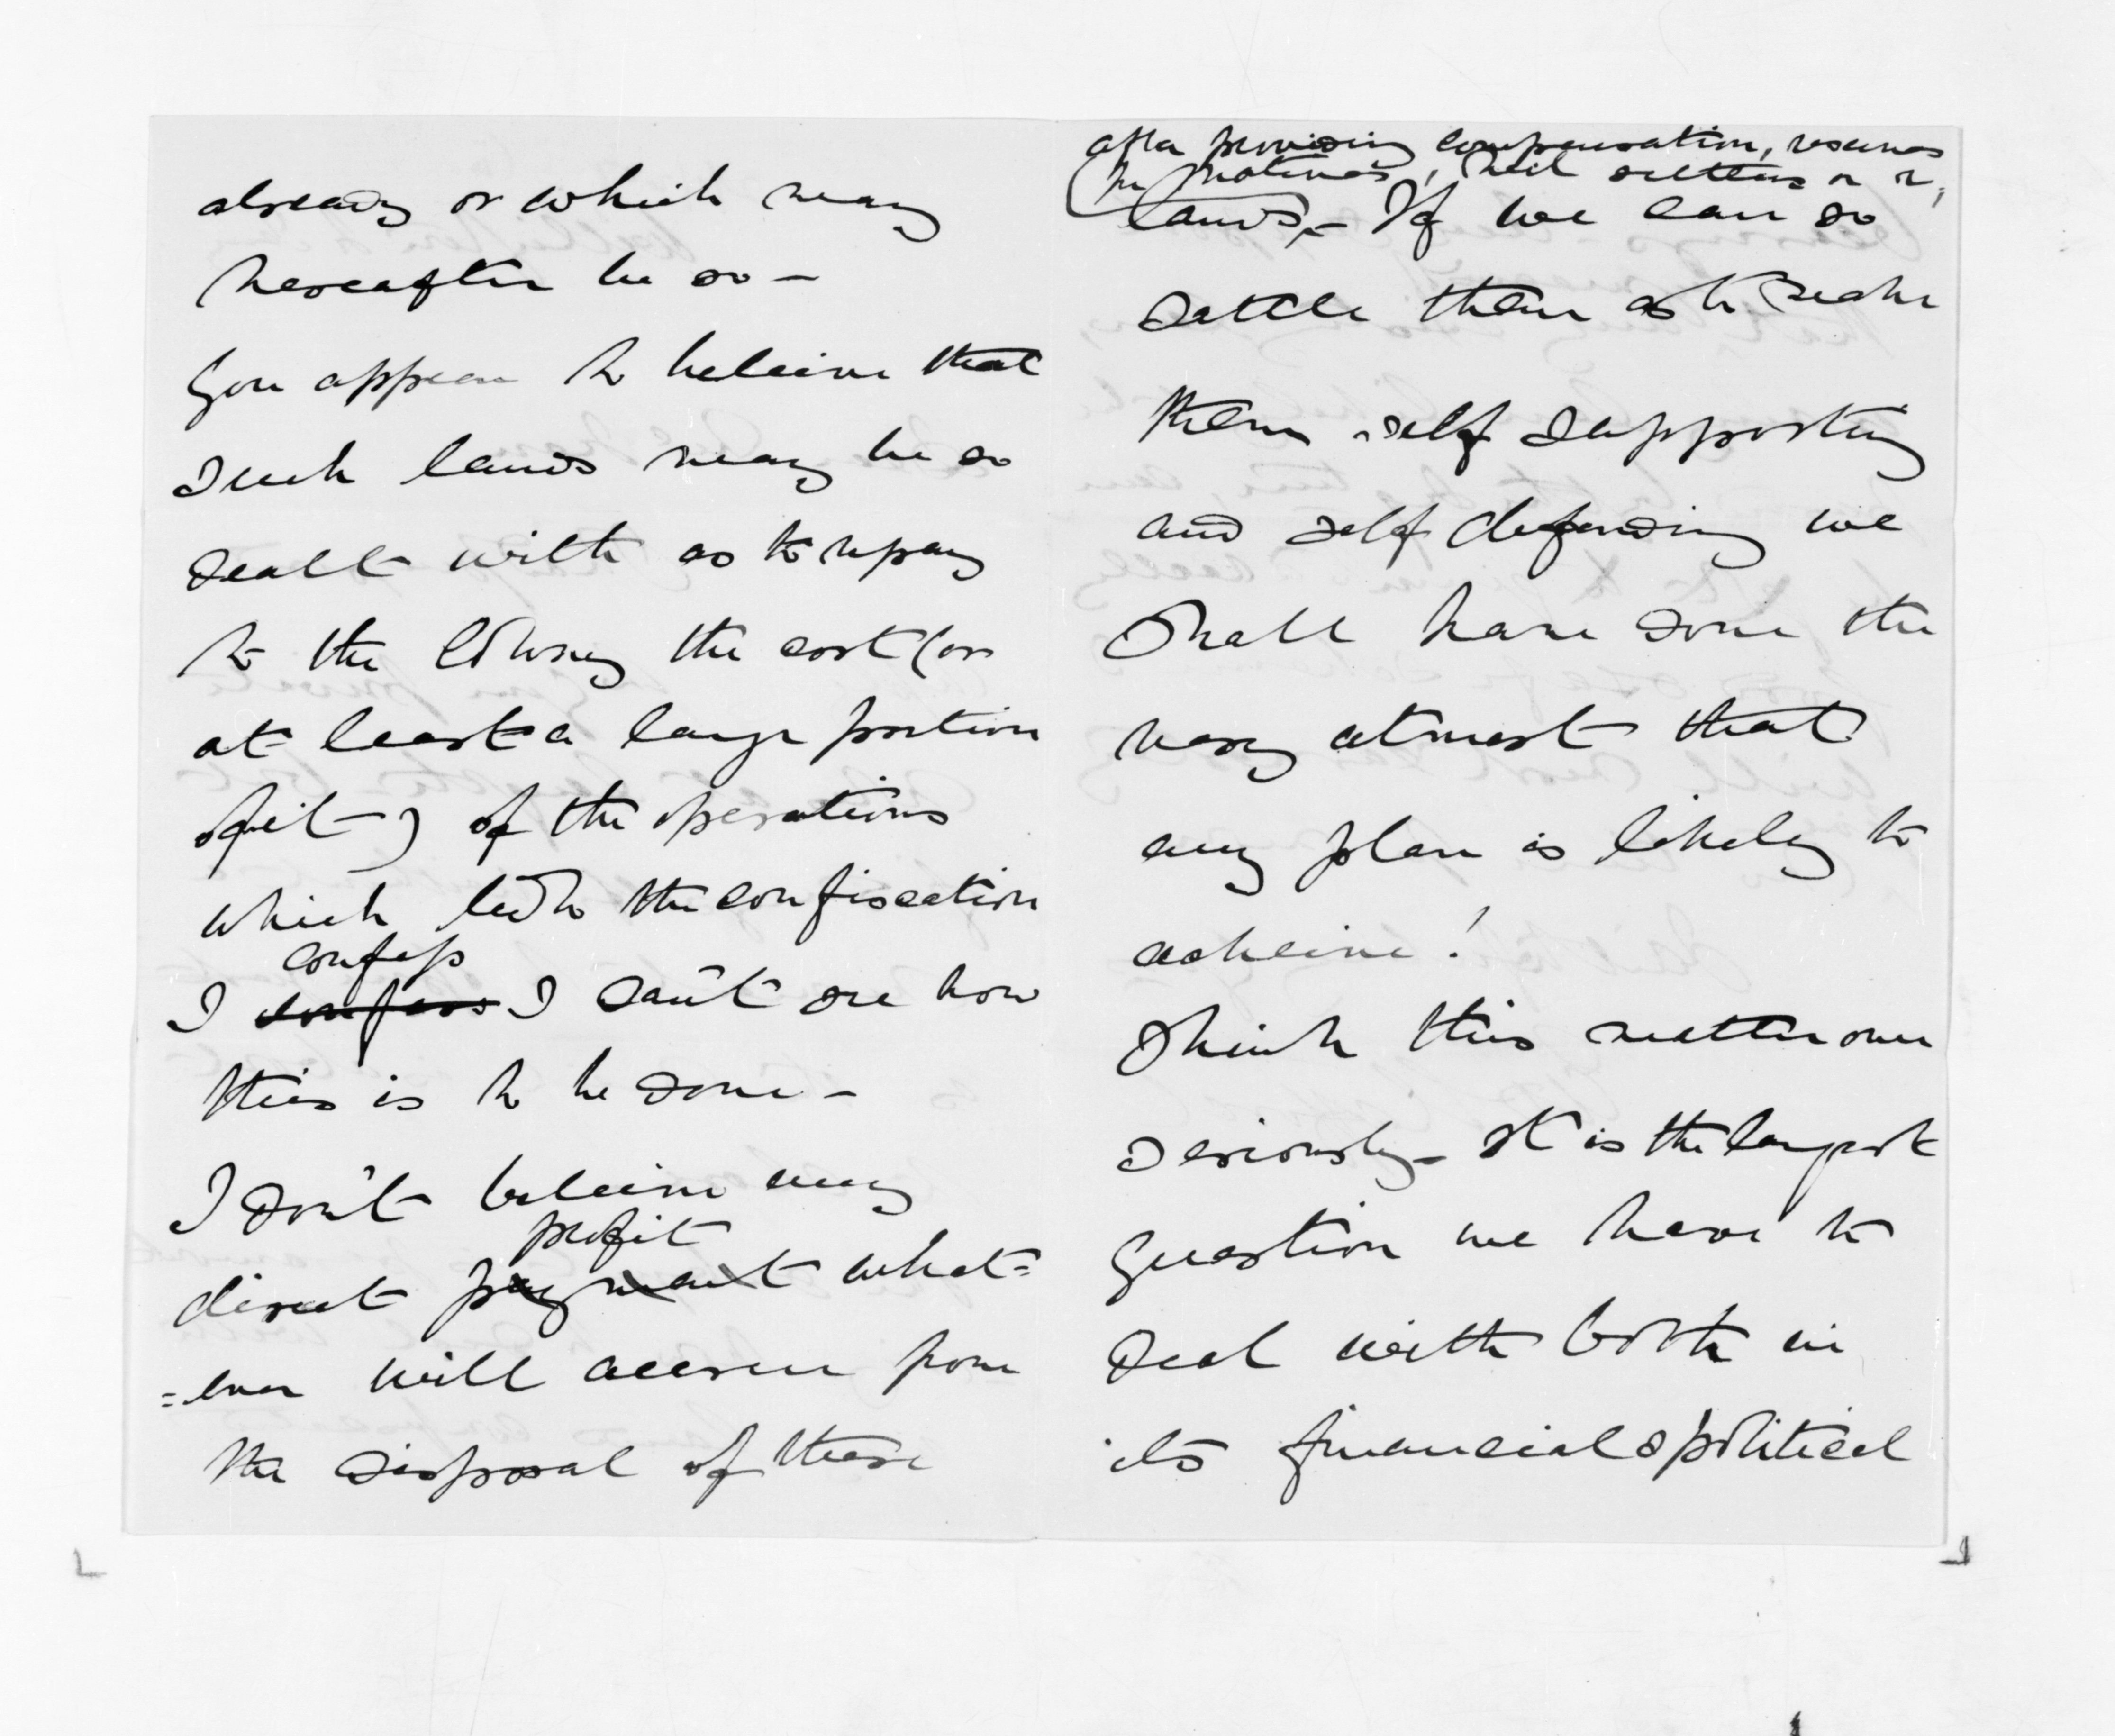 already or which may
hereafter be so –
You appear to beleive that
such lands may be so
dealt with as to repay
to the Colony the cost (or
at least a large portion
of it –) of the operations
which led to the confiscation
confess
I confess I can't see how
this is to be done –
I don't beleive any
profit
direct payment what=
=ever will accrue from
the disposal of these
after providing compensation, reserves
for natives, mil settlers
lands, – If we can so
settle them as to make
them self supporting
and self defending we
shall have done the
very utmost that
any plan is likely to
acheive!
Think this matter over
seriously – It is the largest
question we have to
deal with both in
its financial & political